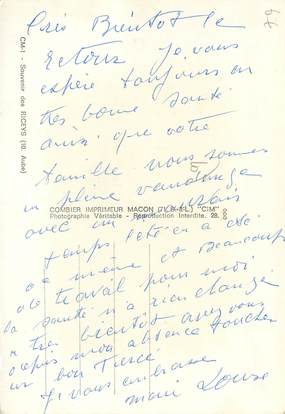 97
Très Bientôt le
Retour je vous
espère toujours en
très bonne santé
ainsi que votre
famille nous sommes
en pleine vendange
avec un mauvais
temps l'été en a été
de même et Beaucoup
de travail pour moi
la santé n'a rien changé
a très bientôt avez vous
depuis mon absence toucher
un bon Tiercé
Je vous embrasse
marie Louise
CM-1 - Souvenir des RICEYS (10. Aube)
COMBIER IMPRIMEUR MACON "CIM"
Photographie Véritable - Reproduction Interdite.